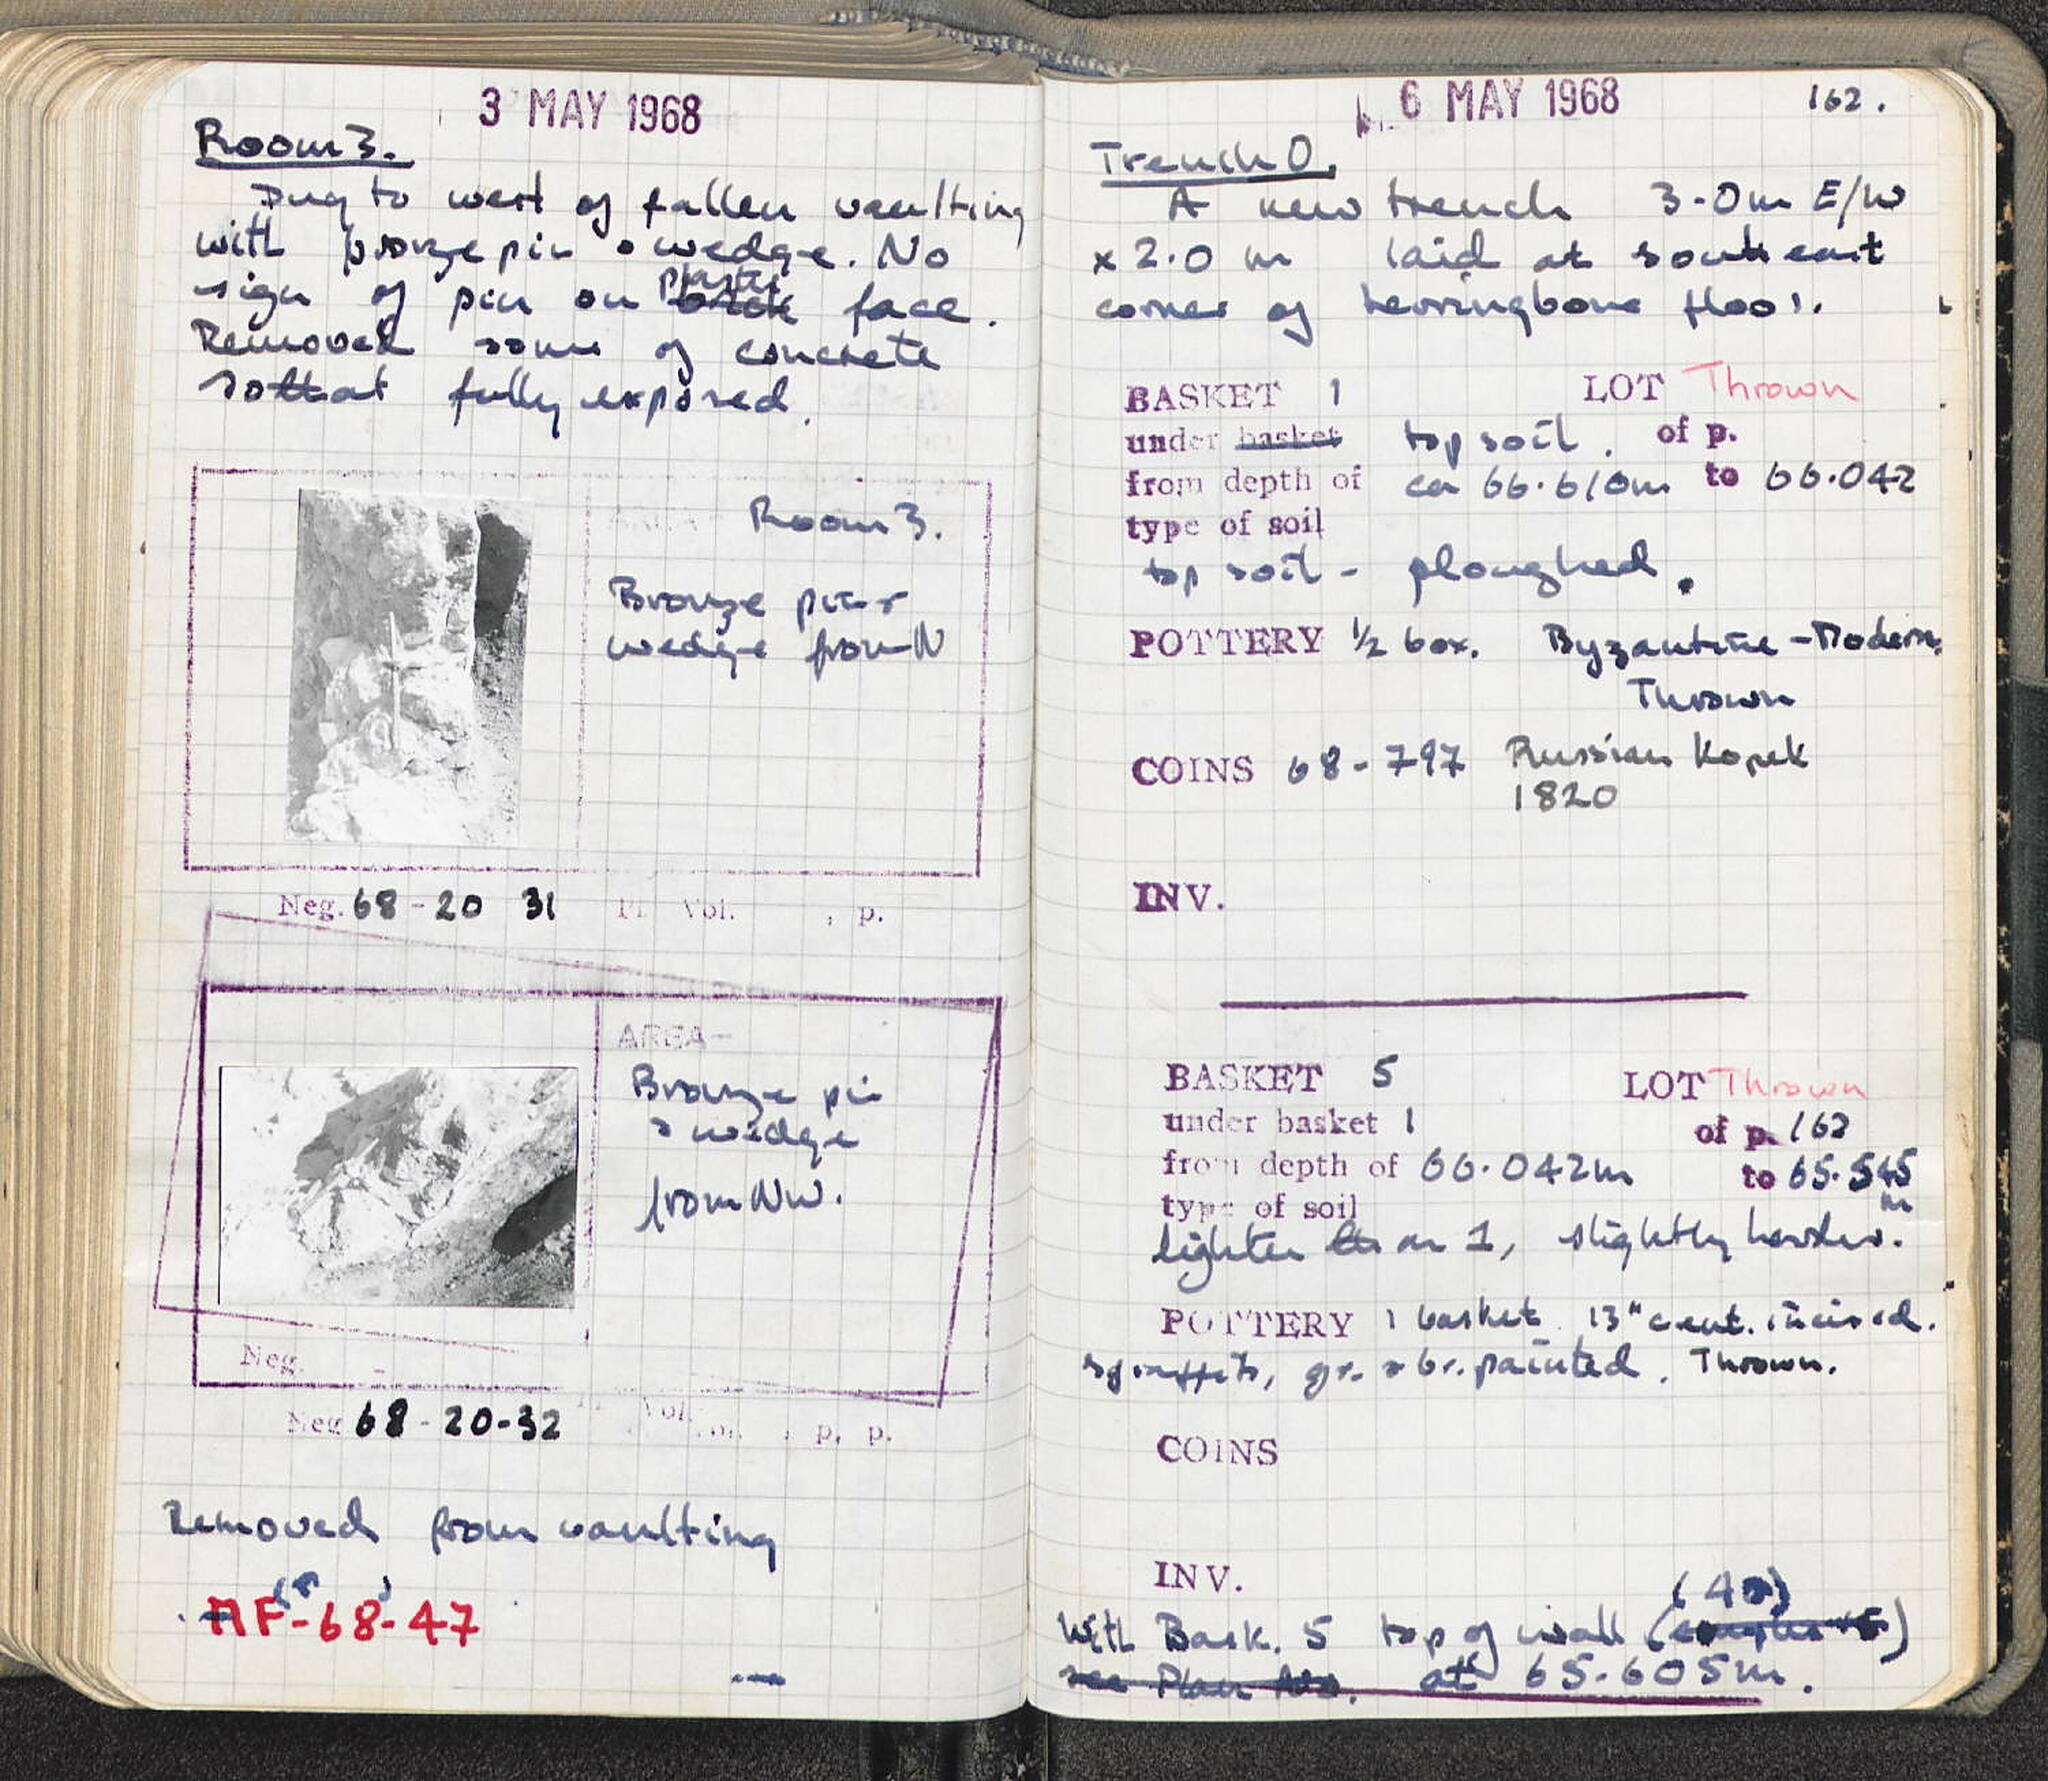 3 MAY 1968
Room 3.
Dug to west of fallen vaulting
with bronze pin & wedge. No
sign of pin on plaster face.
Removed some of concrete
so that fully exposed.
Room 3.
Bronze pin &
wedge from N
Neg. 68-20 31 Vol. , p.
AREA
Bronze pin
& wedge
from NW.
Neg. -
Neg 68-20-32 Vol. p. p.
Removed from vaulting
MF-68-47
6 MAY 1968 162.
Trench O.
A new trench 3.0m E/W
x 2.0 m laid at south east
corner of herringbone floor.
BASKET 1 LOT Thrown
under basket top soil. of p.
from depth of ca 66.610m to 66.042
type of soil
top soil - ploughed.
POTTERY ½ box. Byzantine - Modern.
Thrown
COINS 68-797 Russian Kopek
1820
INV.
BASKET 5 LOT Thrown
under basket 1 of p. 162
from depth of 66.042m to 65.545
m
type of soil
lighter than 1, slightly harder.
POTTERY 1 basket 13" cent. incised.
sgraffito, gr. & br. painted. Thrown.
COINS
INV.
With Bask. 5 top of wall
see Plan No. at 65.605m.